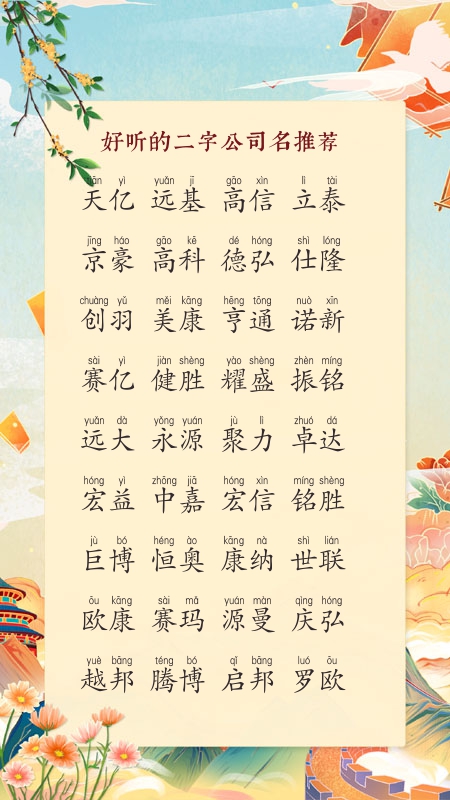 好听的二字公司名推荐
tiān yì yuǎn jī gāo xìn lì tài
天亿 远基 高信 立泰
jīng háo gāo kē dé hóng shì lóng
京豪 高科 德弘 仕隆
chuàng yǔ měi kāng hēng tōng nuò xīn
创羽 美康 亨通 诺新
sài yì jiàn shèng yào shèng zhèn míng
赛亿 健胜 耀盛 振铭
yuǎn dà yǒng yuán jù lì zhuó dá
远大 永源 聚力 卓达
hóng yì zhōng jiā hóng xìn míng shèng
宏益 中嘉 宏信 铭胜
jù bó héng ào kāng nà shì lián
巨博 恒奥 康纳 世联
ōu kāng sài mǎ yuán màn qìng hóng
欧康 赛玛 源曼 庆弘
yuè bāng téng bó qǐ bāng luó ōu
越邦 腾博 启邦 罗欧